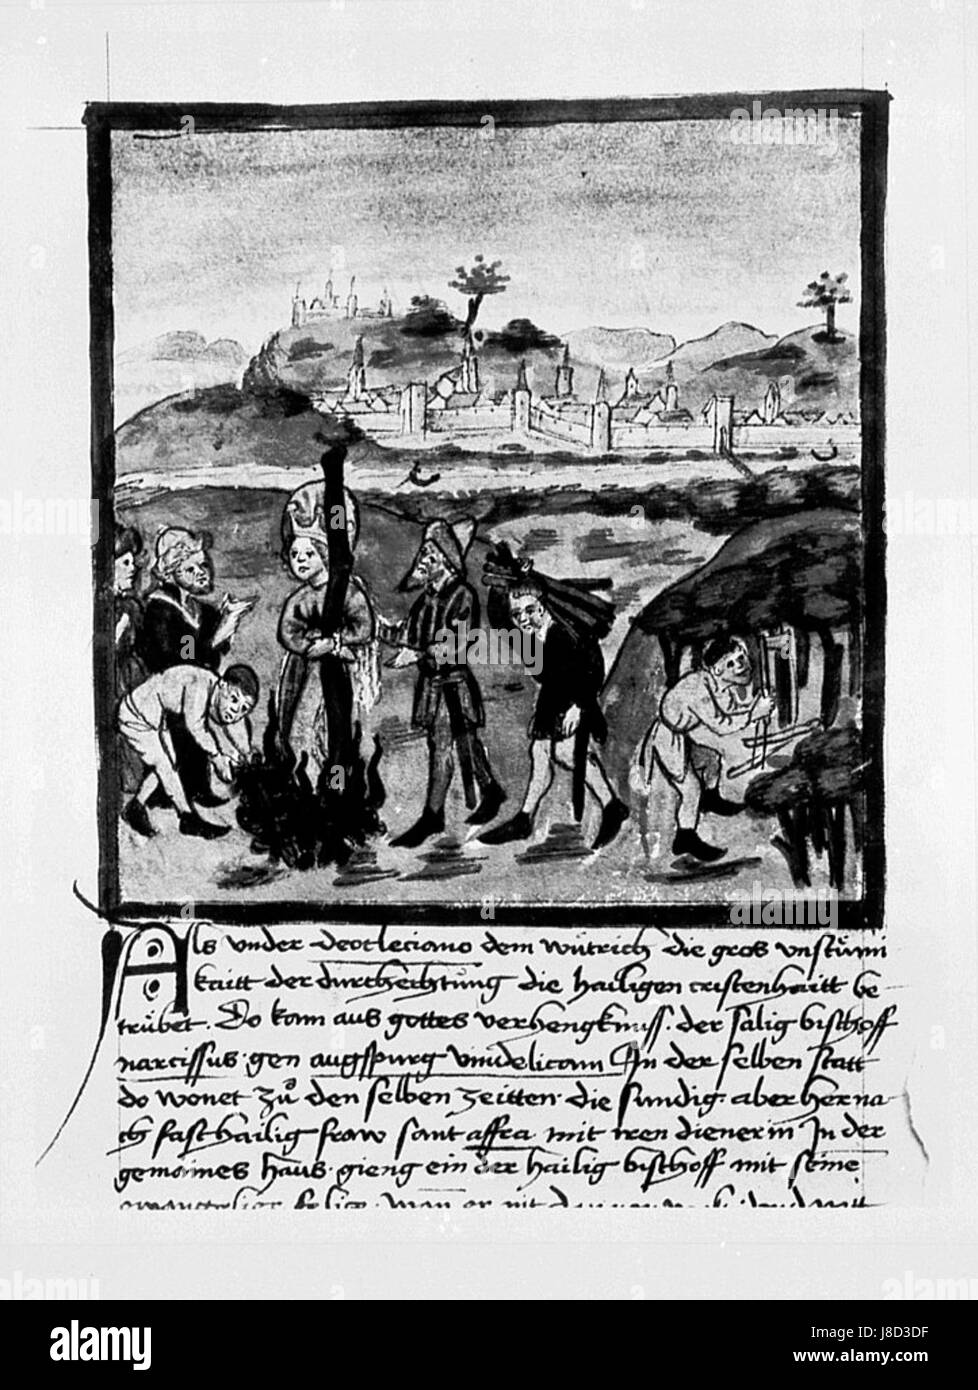 Als vnder deocleciano dem wůtrich die gros vnstůmi
kaitt der durchechtůng die hailigen cristenhaitt be-
trůbet. Do kam aus gottes verhengknuss. der sälig bischoff
narcissus. gen augspurg vindelicam In der selben statt
do wonet zů den selben zeitten. die sundig. aber herna-
ch fast hailig fraw sant affra mit iren dienerin In der
gemaines haus. gieng ein der hailig bischoff mit seine
alamy
alamy
Image ID: J8D3DF
www.alamy.com